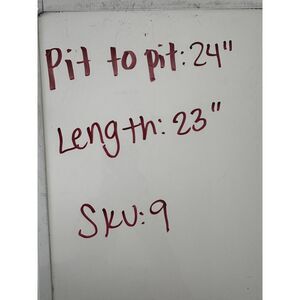 Pit to pit: 24"
Length: 23"
SKU: 9